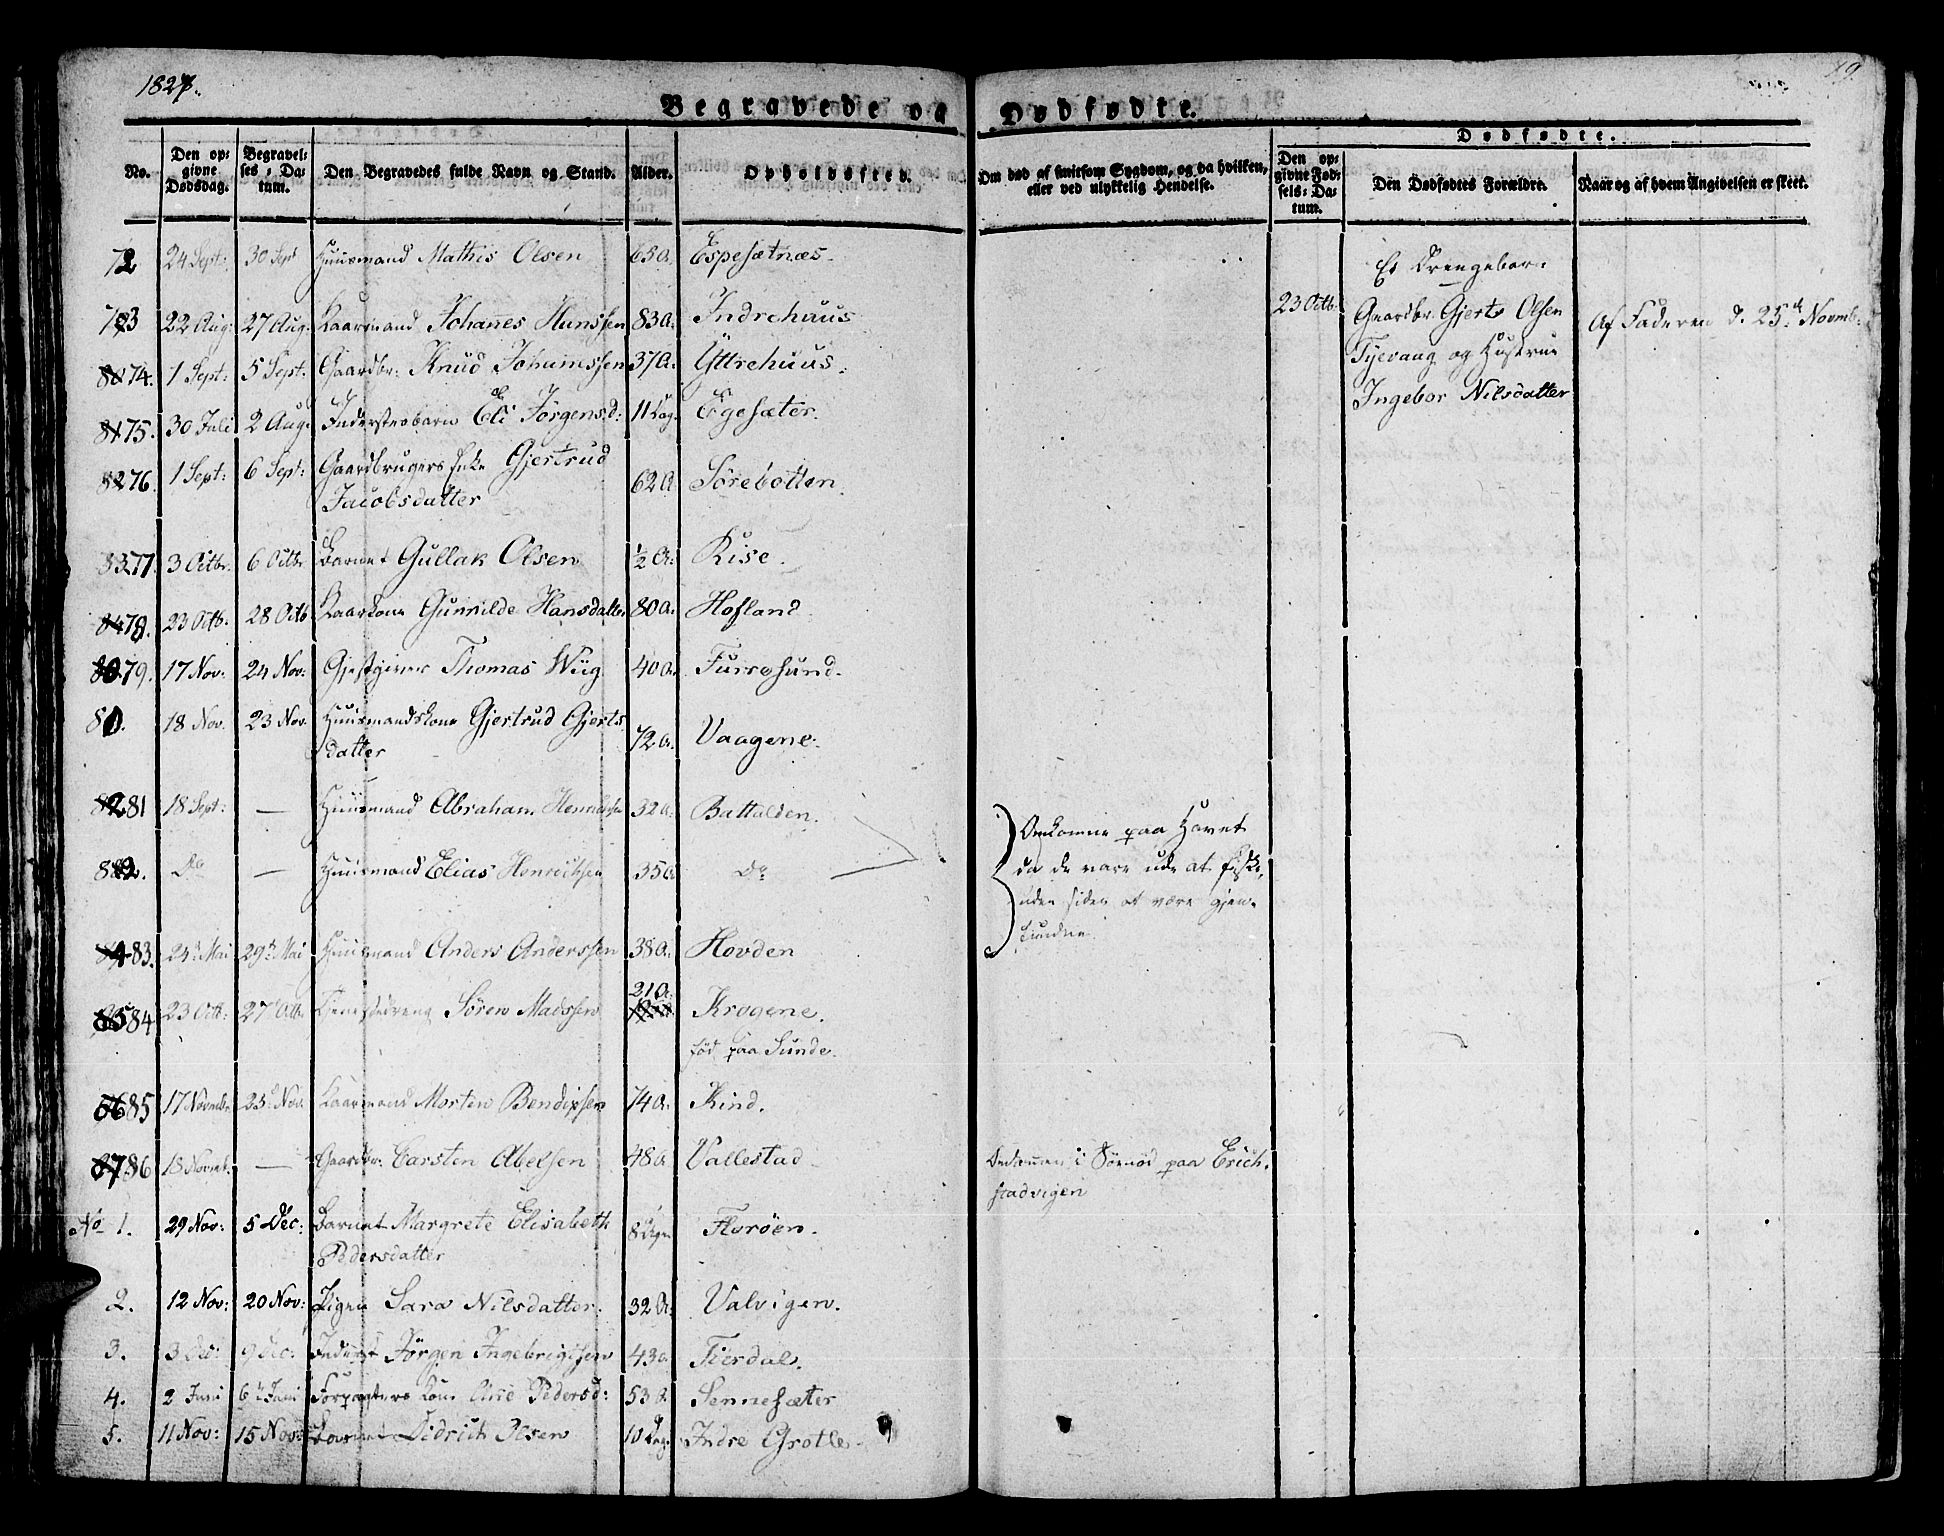 1827.
Begravede og Dødfødte.
Dødfødte.
No.
Den opgivne Dødsdag.
Begravelses-Datum.
Den Begravedes fulde Navn og Stand.
Alder.
Opholdssted.
Om død af smitsom Sygdom, og da hvilken, eller ved ulykkelig Hendelse.
Den opgivne Fødsels-Datum.
Den Dødfødtes Forældre.
Naar og af hvem Angivelsen er skeet.
72 24 Sept: 30 Sept Huusmand Mathis Olsen 65 A. Espesætnæs.
73 22 Aug: 27 Aug: Kaarmand Johannes Hanssen 83 A. Indrehuus
74. 1 Sept: 5 Sept: Gaardbr: Knud Johannessen 37 A. Yttrehuus.
75. 30 Juli 2 Aug: Inderstesbarn Eli Jørgensd: 11 Dag: Egesæter.
76. 1 Sept: 6 Sept: Gaardbrugers Enke Gjertrud
Jacobsdatter 62 A Sørebotten.
77. 3 Octbr. 6 Octbr Barnet Gullak Olsen ½ A: Rise.
78. 23 Octb. 28 Octb Kaarkone Gunnilde Hansdatter 80 A. Hofland.
79. 17 Nov: 24 Nov: Gjestgiver Thomas Wiig 40 A. Furresund.
80. 18 Nov. 23 Nov. Huusmandskone Gjertrud Gjerts
datter 72 A. Vaagene.
81 18 Sept: — Huusmand Abraham Henrichsen 32 A. Battalden.
82. Do — Huusmand Elias Henrichsen 35 A Do
Omkomne paa Havet
da de vare ude at fiske,
uden siden at være gjen-
fundne.
83. 24de Mai 29de Mai Huusmand Anders Anderssen 38 A. Hovden
84 23 Octb: 27 Octb. Tjenestedreng Søren Madssen 21 A. Krogene.
fød paa Sunde.
85 17 Novmbr 25 Nov. Kaarmand Morten Bendixsen 74 A. Kind.
86 18 Novmb. — Gaardbr. Carsten Abelsen 48 A Vallestad
Omkommen i Sønød paa Erich-
stadvigen
No 1. 29 Nov: 5 Dec: Barnet Margrete Elisabeth
Pedersdatter 8 Dage Florøen.
2. 12 Nov: 20 Nov: Pigen Sara Nilsdatter. 32 A. Valvigen.
3. 3 Dec: 9 Dec: Inderst Jørgen Ingebrigtsen 43 A Tierdal.
4. 2 Juni 6 Juni Forpagters Kone Ane Pedersd: 53 A. Sennesæter
5. 11 Nov: 15 Nov: Barnet Didrich Olsen 10 Dag. Indre Grotle
23 Octb.
Et Drengebarn
Gaardbr. Gjert Olsen
Tyevaag og Hustrue
Ingebor Nilsdatter
Af Faderen d. 25de Novmb.